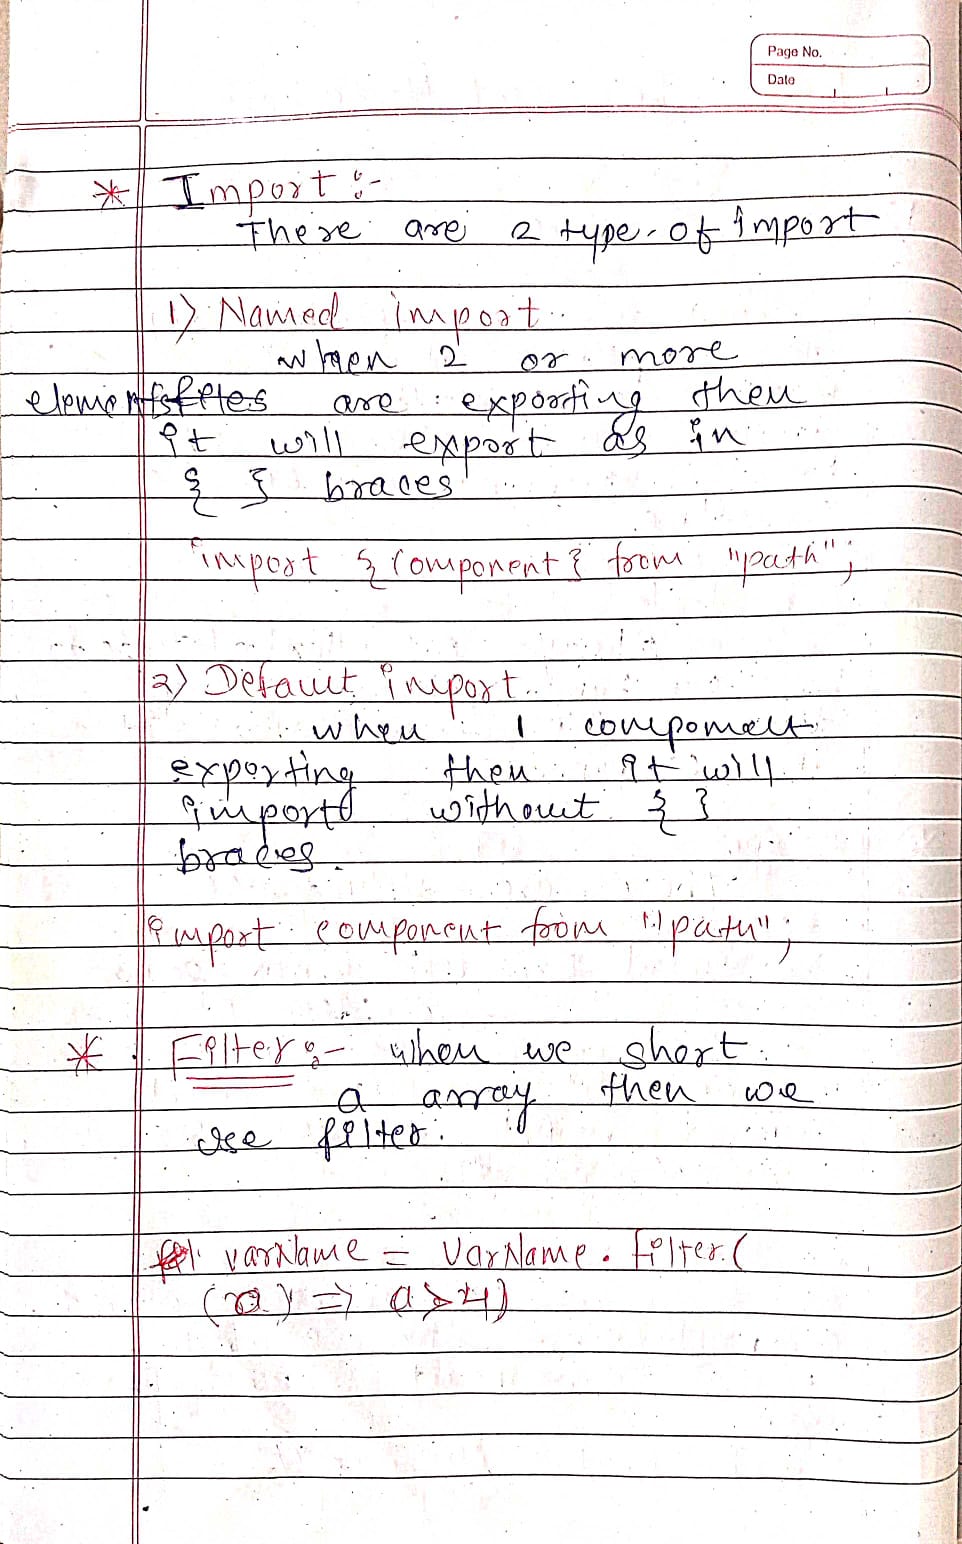 Page No.
Date
* Import :-
There are 2 type of import
1) Named import
when 2 or more
elements are exporting then
it will export as in
{ } braces
import { component } from "path";
2) Default import
when 1 compomelt
exporting then it will
import without { }
braces.
import component from "path";
* Filter :- when we short
a array then we
use filter.
varName = VarName.filter(
(a) => a > 4)